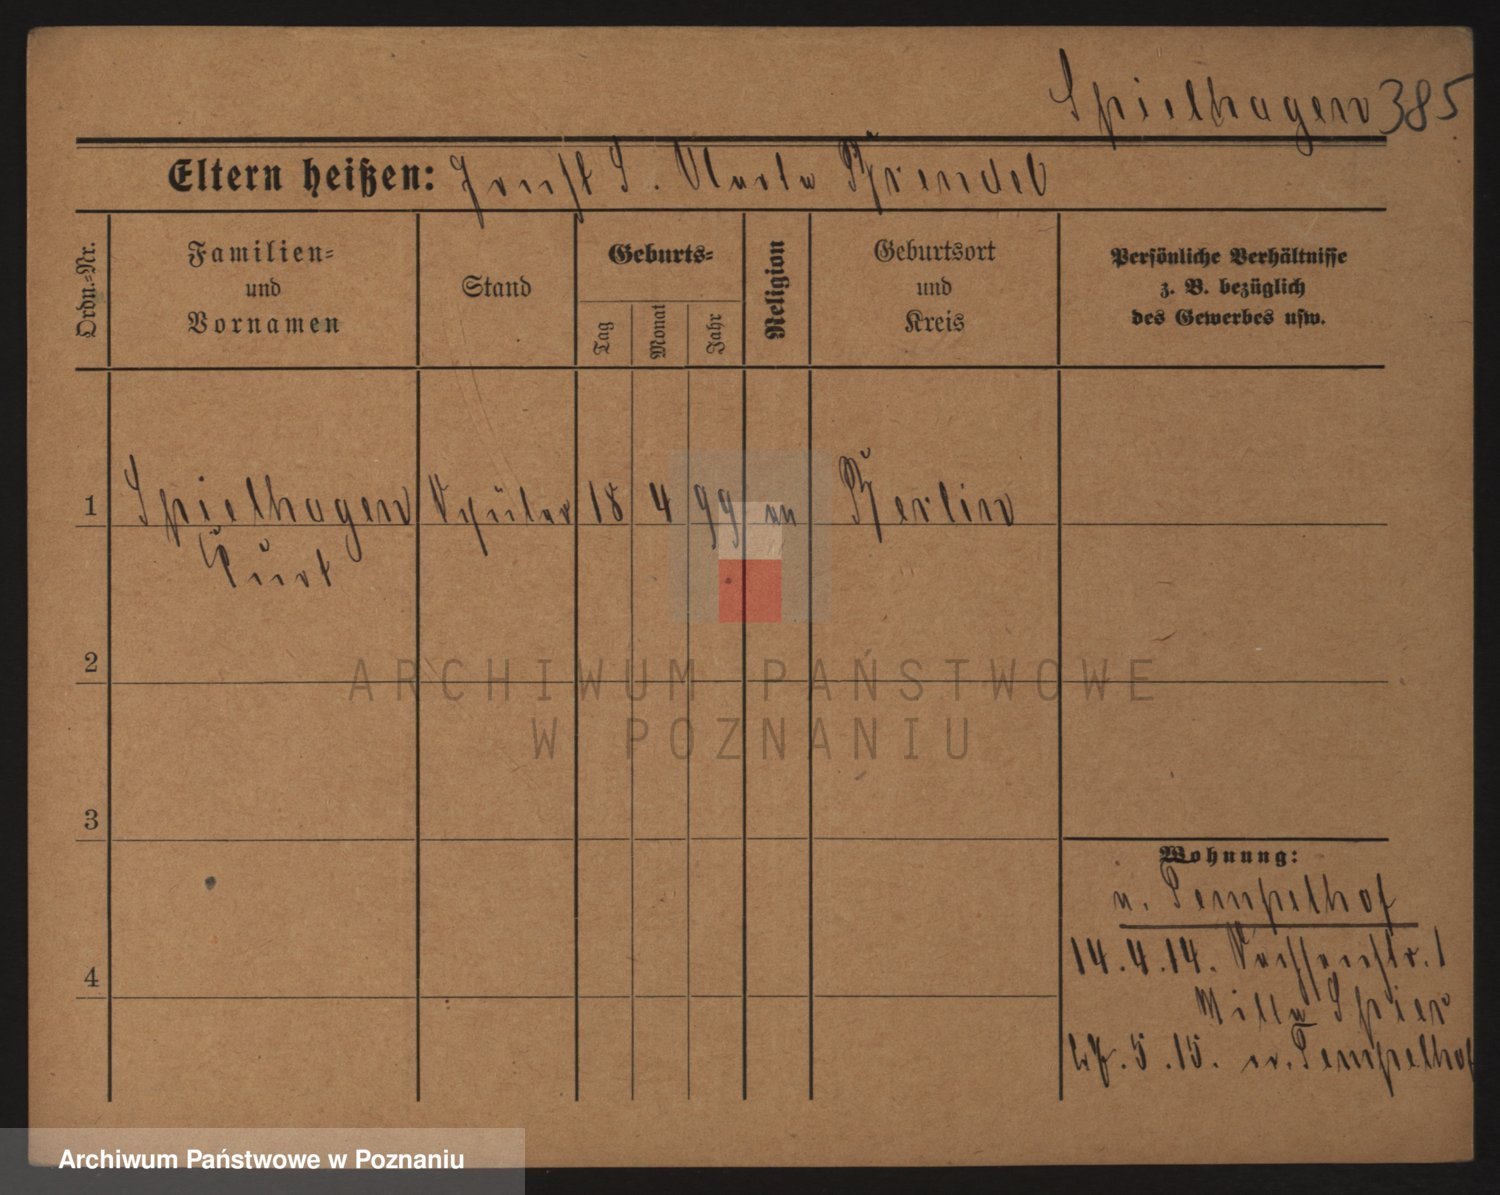 Spielhagen 385
Eltern heißen: Ernst S. Marta Brendel
Ordn.=Nr.
Familien=
und
Vornamen
Stand
Geburts=
Tag
Monat
Jahr
Religion
Geburtsort
und
Kreis
Persönliche Verhältnisse
z. B. bezüglich
des Gewerbes usw.
1 Spielhagen Schüler 18 4 99 ev Berlin
Curt
2
3
4
Wohnung:
n. Tempelhof
14.4.14.
Villa
5.15. n. Tempelhof
ARCHIWUM PAŃSTWOWE
W POZNANIU
Archiwum Państwowe w Poznaniu